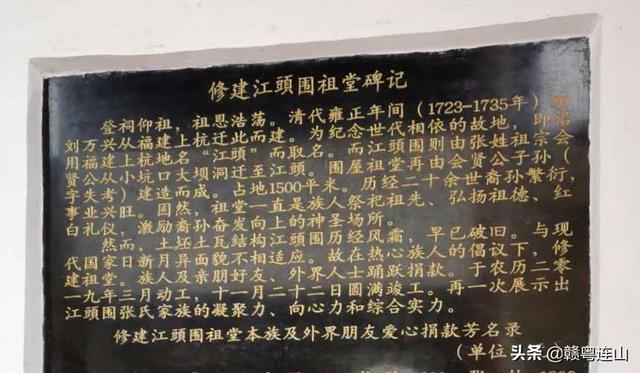 修建江頭围祖堂碑记
登祠仰祖，祖恩浩荡。清代雍正年间（1723-1735年）
刘万兴从福建上杭迁此而建。为纪念世代相依的故地，即沿
用福建上杭地名“江頭”而取名。而江頭围则由张姓祖宗会
贤公从小坑口大坝洞迁至江頭。围屋祖堂再由会贤公子孙（
字失考）建造而成。占地1500平米。历经二十余世裔孙繁衍，
事业兴旺。固然，祖堂一直是族人祭祀祖先、弘扬祖德、红
白礼仪，激励裔孙奋发向上的神圣场所。
然而，土坯土瓦结构江頭围历经风霜，早已破旧。与现
代国家日新月异面貌不相适应。故在热心族人的倡议下，修
建祖堂。族人及亲朋好友、外界人士踊跃捐款。于农历二零
一九年三月动工，十一月二十二日圆满竣工。再一次展示出
江頭围张氏家族的凝聚力、向心力和综合实力。
修建江頭围祖堂本族及外界朋友爱心捐款芳名录
（单位
头条 @赣粤连山